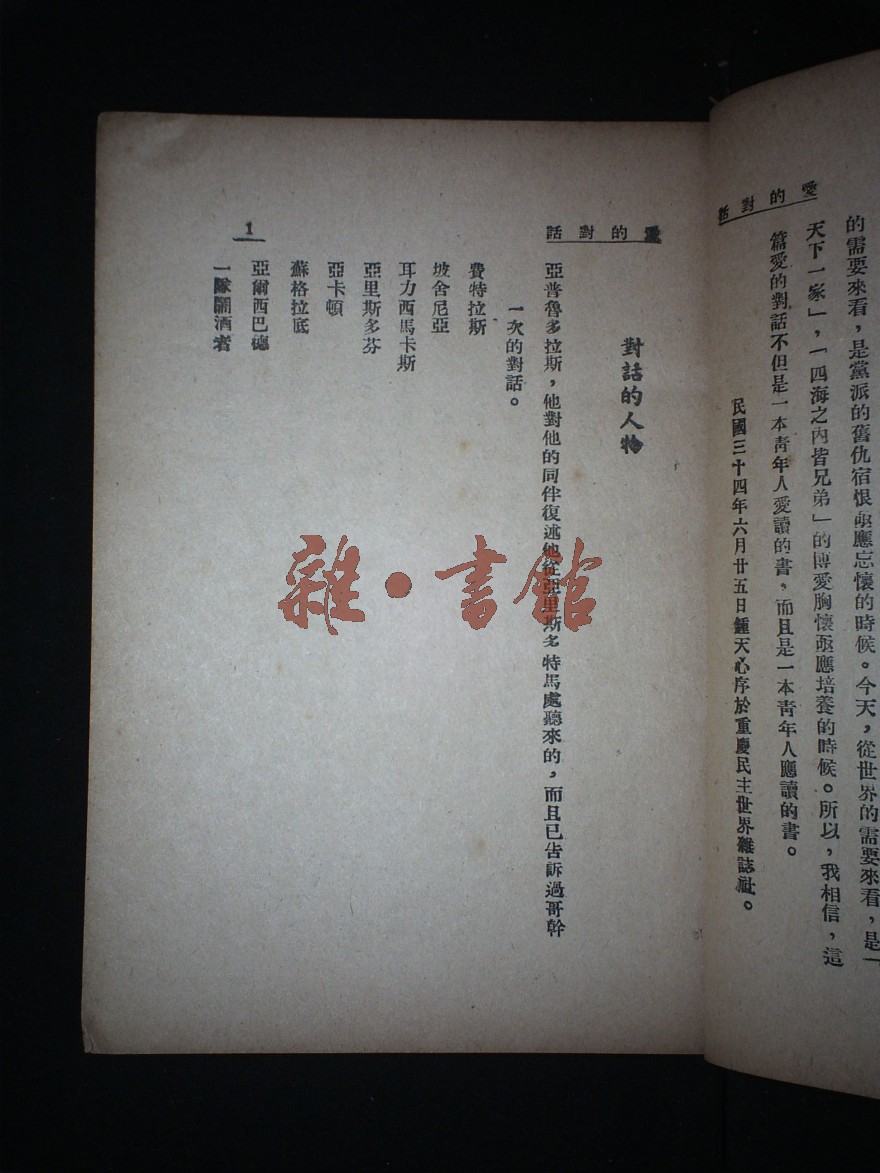 愛的對話
的需要來看，是黨派的舊仇宿恨亟應忘懷的時候。今天，從世界的需要來看，是一
天下一家」，「四海之內皆兄弟」的博愛胸懷亟應培養的時候。所以，我相信，這
篇愛的對話不但是一本青年人愛讀的書，而且是一本青年人應讀的書。
民國三十四年六月廿五日鍾天心序於重慶民主世界雜誌社。
愛的對話
對話的人物
亞普魯多拉斯，他對他的同伴復述他從亞里斯多特馬處聽來的，而且已告訴過哥幹
一次的對話。
費特拉斯
坡舍尼亞
耳力西馬卡斯
亞里斯多芬
亞卡頓
蘇格拉底
亞爾西巴德
一隊鬧酒者
1
雜·書館